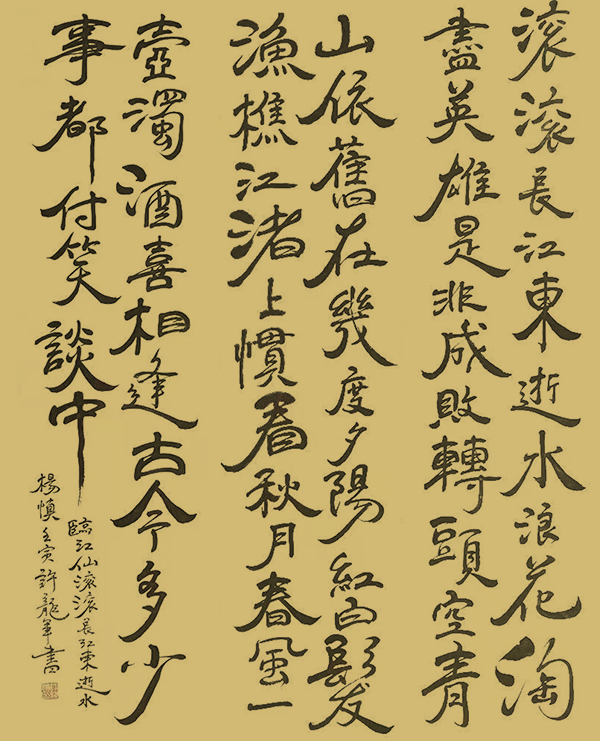 滚滚長江東逝水浪花淘
盡英雄是非成敗轉頭空青
山依舊在幾度夕陽紅白髮
漁樵江渚上慣看秋月春風一
壺濁酒喜相逢古今多少
事都付笑談中
臨江仙滚滚長江東逝水
楊慎壬寅許龍軍書